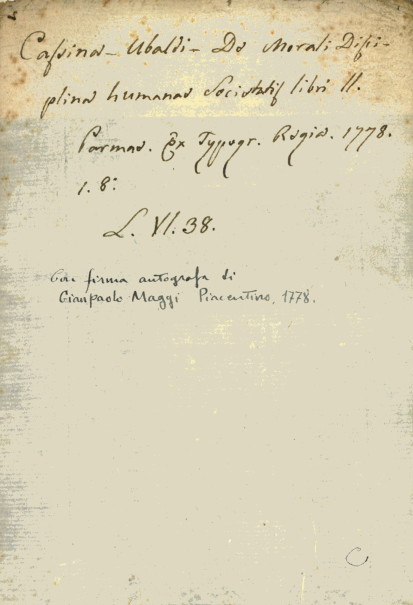 Cassinæ - Ubaldi - De Morali Disci-
plinæ humanæ Societatis libri II.
Parmæ. Ex Typogr. Regia. 1778.
1. 8.°
L. VI. 38.
Con firma autografa di
Gianpaolo Maggi Piacentino, 1778.